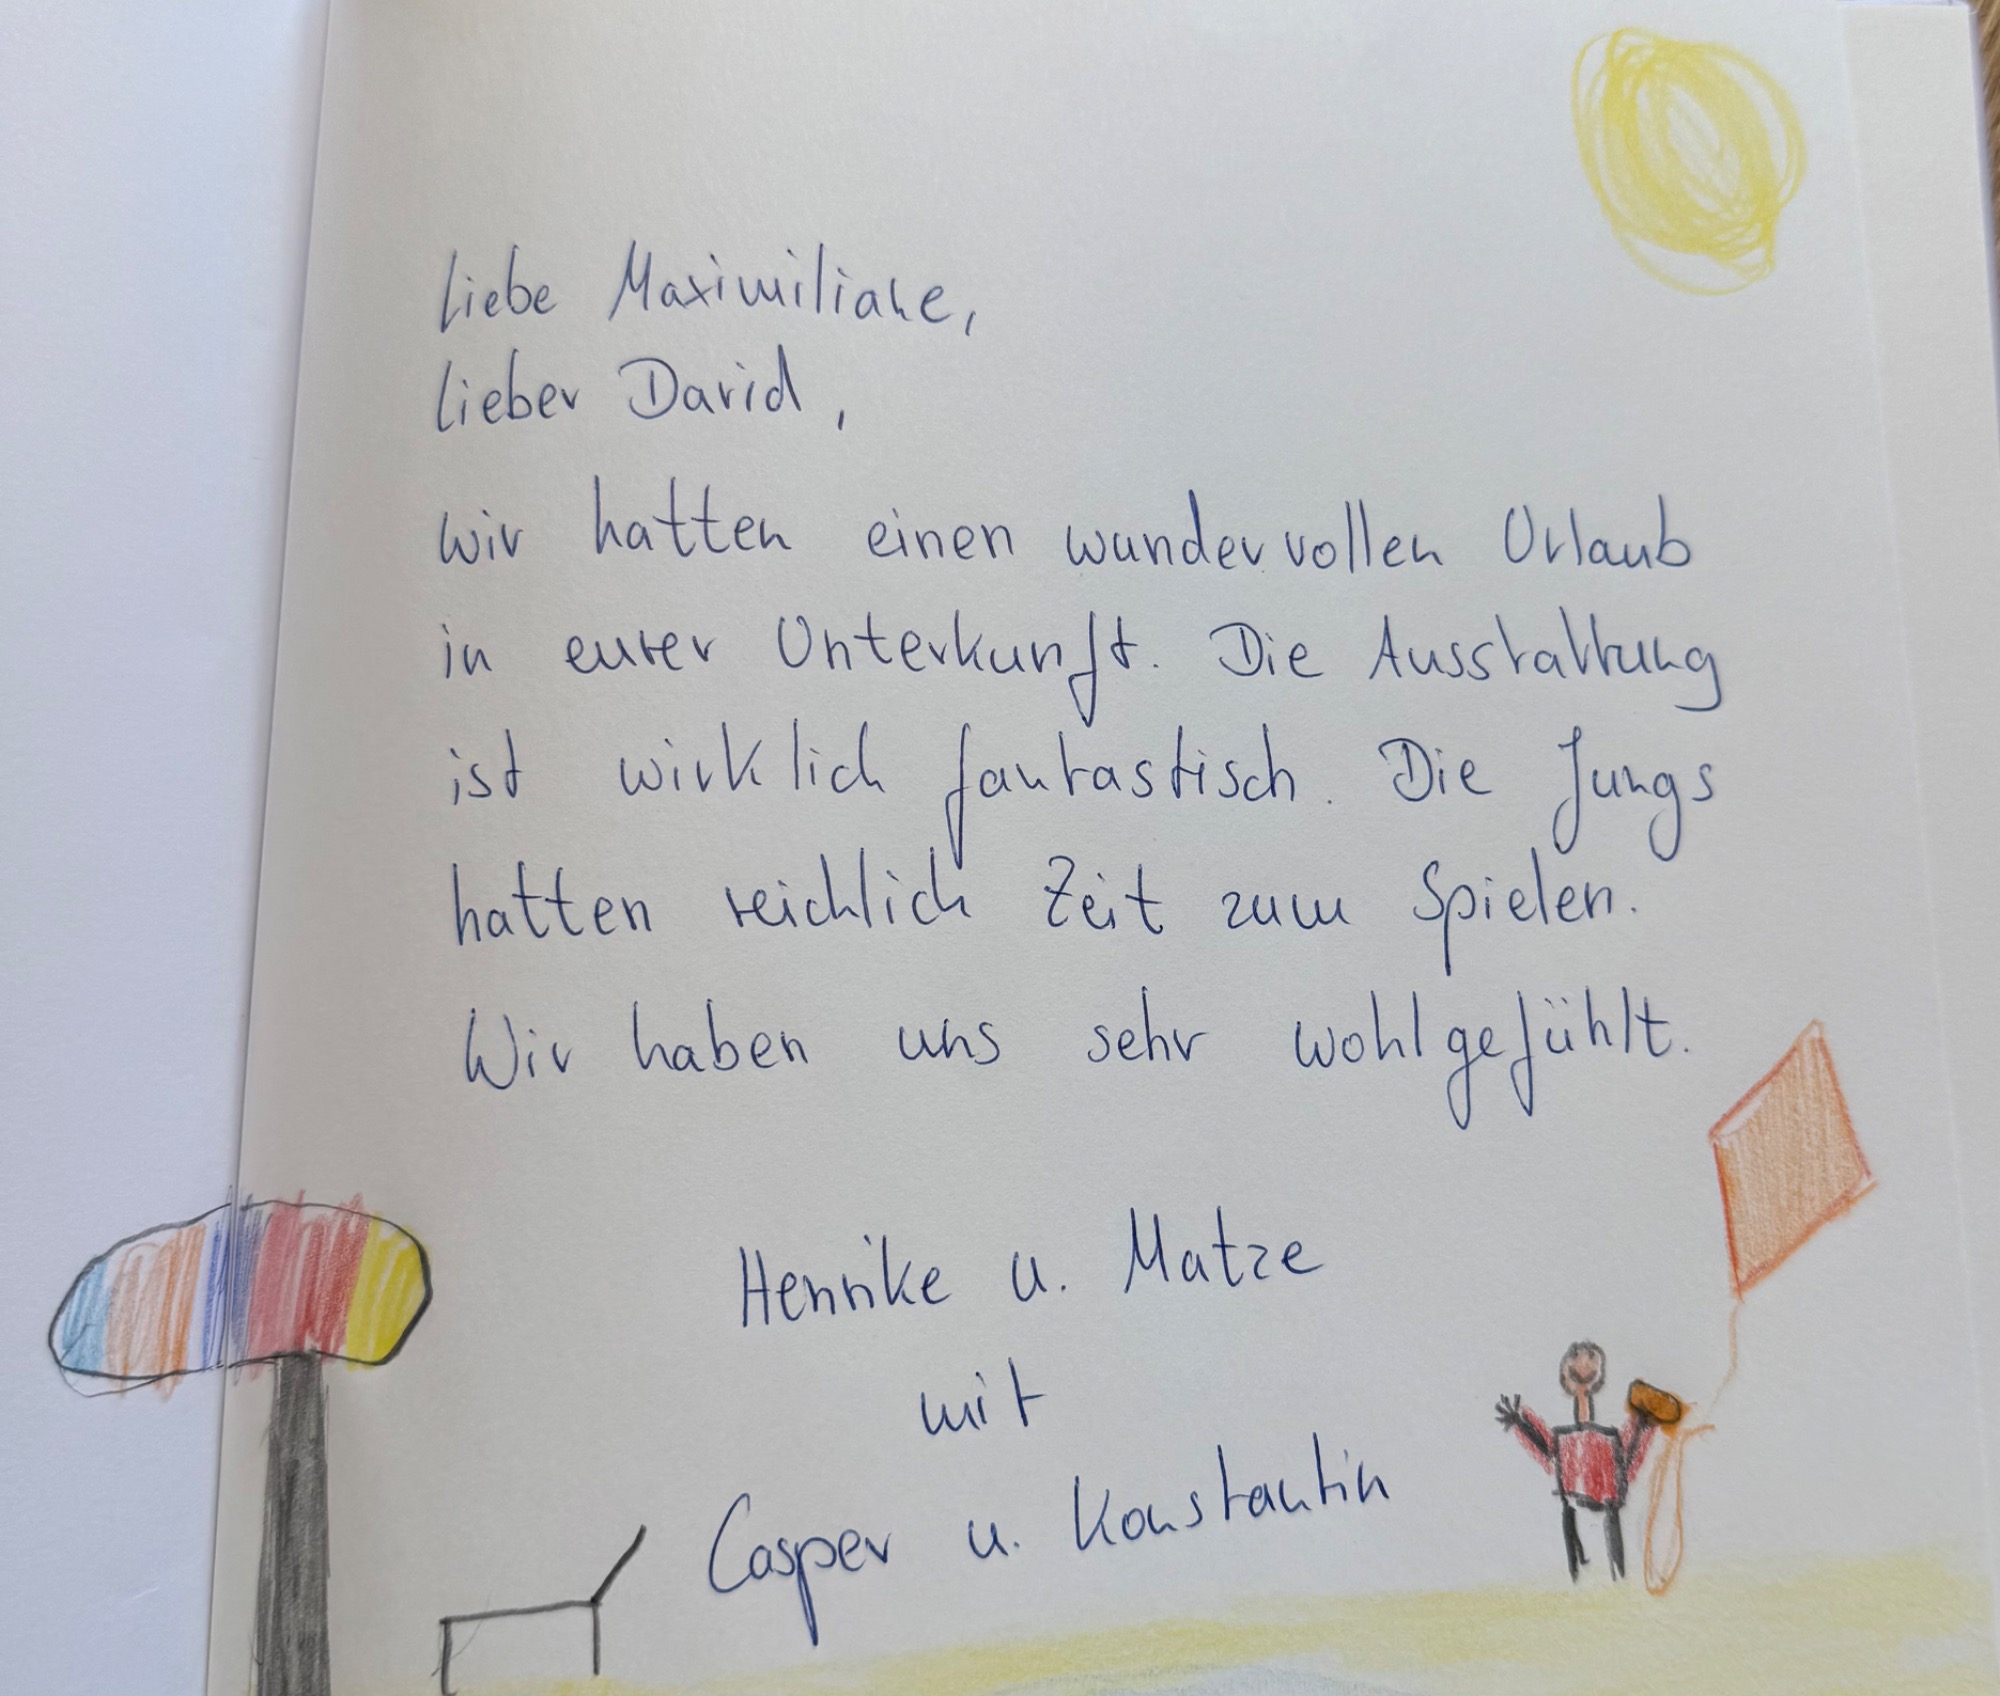 Liebe Maximiliane,
lieber David,
wir hatten einen wundervollen Urlaub
in eurer Unterkunft. Die Ausstattung
ist wirklich fantastisch. Die Jungs
hatten reichlich Zeit zum Spielen.
Wir haben uns sehr wohlgefühlt.
Henrike u. Matze
mit
Casper u. Konstantin